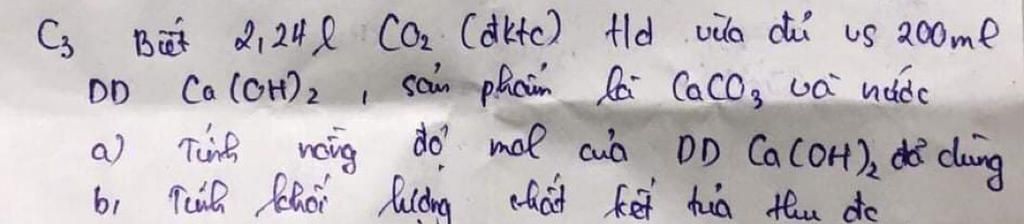 C3 Biết 2,24l CO2 (đktc) t/d vừa đủ vs 200ml
DD Ca(OH)2, sản phẩm là CaCO3 và nước
a) Tính nồng độ mol của DD Ca(OH)2 đã dùng
b, Tính khối lượng chất kết tủa thu đc